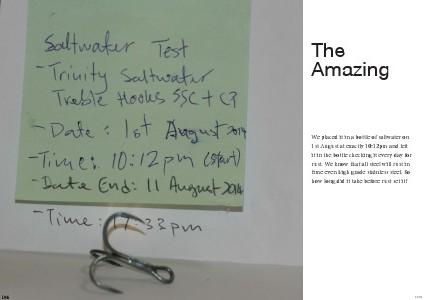 Saltwater Test
- Trinity Saltwater
Treble Hooks SSC + C3
- Date: 1st August 2014
- Time: 10:12pm (start)
- Date End: 11 August 2014
- Time: 33pm
The
Amazing
We placed it in a bottle of saltwater on
1st August at exactly 10:12pm and left
it in the bottle checking it every day for
rust. We know that all steel will rust in
time even high grade stainless steel. So
how long did it take before rust set it?